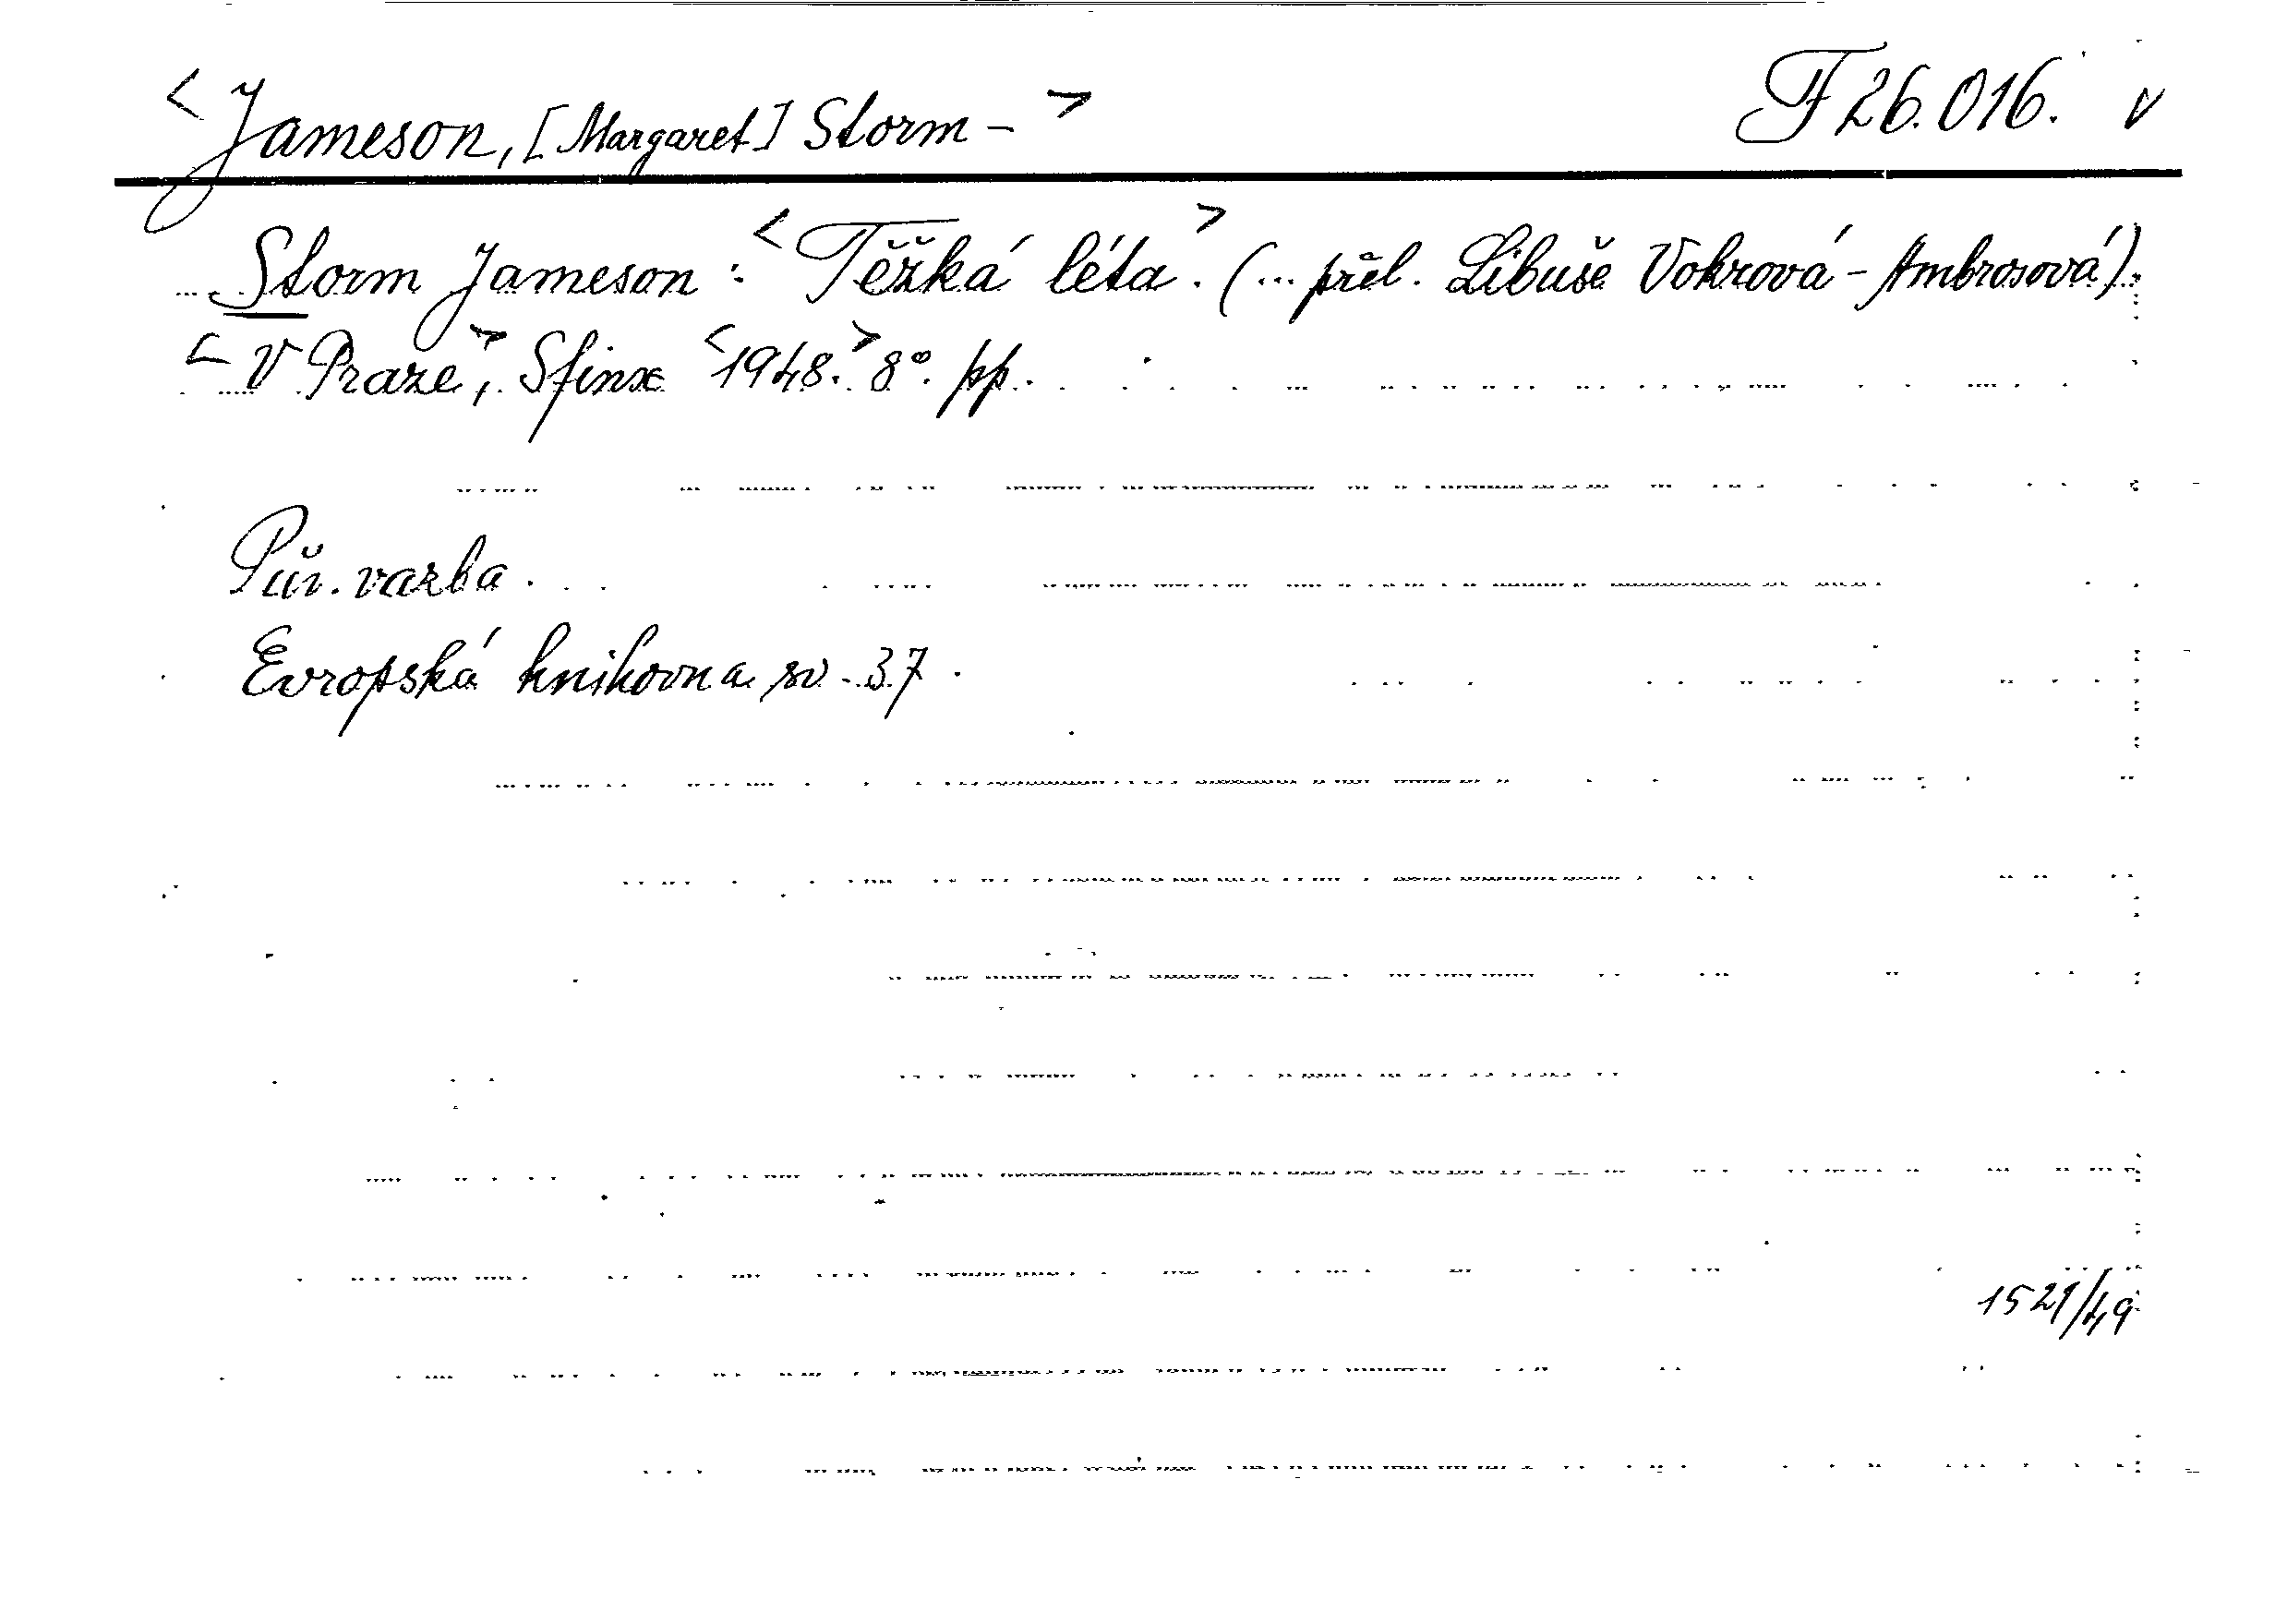 <Jameson, [Margaret] Storm - > F 26.016. v
Storm Jameson : <Těžká léta>. (... přel. Libuše Vokrová - Ambrosová).
<V Praze>, Sfinx <1948.> 8°. pp.
Pův. vazba.
Evropská knihovna sv. 37.
1521/49